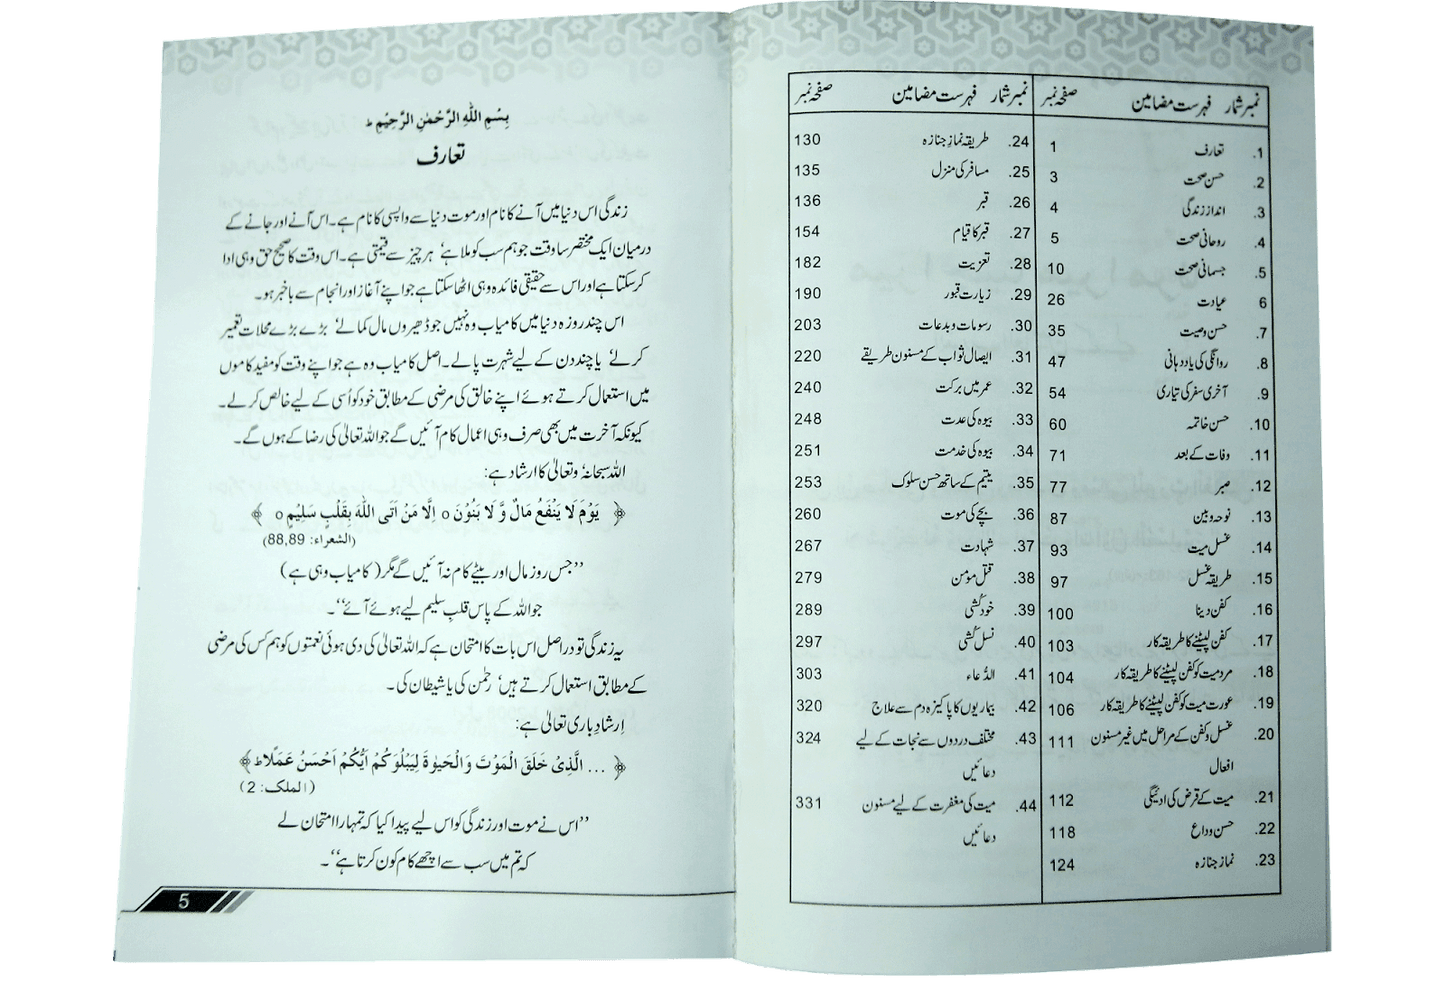 نمبر شمار فہرست مضامین صفحہ نمبر
1. تعارف 1
2. حسن صحت 3
3. انداز زندگی 4
4. روحانی صحت 5
5. جسمانی صحت 10
6 عیادت 26
7. حسن وصیت 35
8. روانگی کی یاددہانی 47
9. آخری سفر کی تیاری 54
10. حسن خاتمہ 60
11. وفات کے بعد 71
12. صبر 77
13. نوحہ و بین 87
14. غسل میت 93
15. طریقہ غسل 97
16. کفن دینا 100
17. کفن لپیٹنے کا طریقہ کار 103
18. مرد میت کو کفن لپیٹنے کا طریقہ کار 104
19. عورت میت کو کفن لپیٹنے کا طریقہ کار 106
20. غسل و کفن کے مراحل میں غیر مسنون 111
افعال
21. میت کے قرض کی ادئیگی 112
22. حسن وداع 118
23. نماز جنازہ 124
نمبر شمار فہرست مضامین صفحہ نمبر
24. طریقہ نماز جنازہ 130
25. مسافر کی منزل 135
26. قبر 136
27. قبر کا قیام 154
28. تعزیت 182
29. زیارت قبور 190
30. رسومات و بدعات 203
31. ایصال ثواب کے مسنون طریقے 220
32. عمر میں برکت 240
33. بیوہ کی عدت 248
34. بیوہ کی خدمت 251
35. یتیم کے ساتھ حسن سلوک 253
36. بچے کی موت 260
37. شہادت 267
38. قتل مومن 279
39. خود کُشی 289
40. نسل کُشی 297
41. الدُعاء 303
42. بیماریوں کا پاکیزہ دم سے علاج 320
43. مختلف دردوں سے نجات کے لیے 324
دعائیں
44. میت کی مغفرت کے لیے مسنون 331
دعائیں
بِسْمِ اللّٰهِ الرَّحْمٰنِ الرَّحِيْمِ ط
تعارف
زندگی اس دنیا میں آنے کا نام اور موت دنیا سے واپسی کا نام ہے۔ اس آنے اور جانے کے
درمیان ایک مختصر سا وقت جو ہم سب کو ملا ہے، ہر چیز سے قیمتی ہے۔ اس وقت کا صحیح حق وہی ادا
کر سکتا ہے اور اس سے حقیقی فائدہ وہی اٹھا سکتا ہے جو اپنے آغاز اور انجام سے باخبر ہو۔
اس چند روزہ دنیا میں کامیاب وہ نہیں جو ڈھیروں مال کمالے، بڑے بڑے محلات تعمیر
کرلے، یا چند دن کے لیے شہرت پالے۔ اصل کامیاب وہ ہے جو اپنے وقت کو مفید کاموں
میں استعمال کرتے ہوئے اپنے خالق کی مرضی کے مطابق خود کو اُسی کے لیے خالص کر لے۔
کیونکہ آخرت میں بھی صرف وہی اعمال کام آئیں گے جو اللہ تعالیٰ کی رضا کے ہوں گے۔
اللہ سبحانہٗ وتعالیٰ کا ارشاد ہے:
﴿ يَوْمَ لَا يَنْفَعُ مَالٌ وَّ لَا بَنُوْنَ o اِلَّا مَنْ اَتَى اللّٰهَ بِقَلْبٍ سَلِيْمٍ o ﴾
(الشعراء: 88,89)
”جس روز مال اور بیٹے کام نہ آئیں گے مگر (کامیاب وہی ہے)
جو اللہ کے پاس قلبِ سلیم لیے ہوئے آئے“۔
یہ زندگی تو دراصل اس بات کا امتحان ہے کہ اللہ تعالیٰ کی دی ہوئی نعمتوں کو ہم کس کی مرضی
کے مطابق استعمال کرتے ہیں، رحمٰن کی یا شیطان کی۔
اِرشادِ باری تعالیٰ ہے:
﴿ ... الَّذِیْ خَلَقَ الْمَوْتَ وَالْحَيٰوةَ لِيَبْلُوَكُمْ اَيُّكُمْ اَحْسَنُ عَمَلًا ط﴾
(الملک: 2)
”اس نے موت اور زندگی کو اس لیے پیدا کیا کہ تمہارا امتحان لے
کہ تم میں سب سے اچھے کام کون کرتا ہے“۔
5